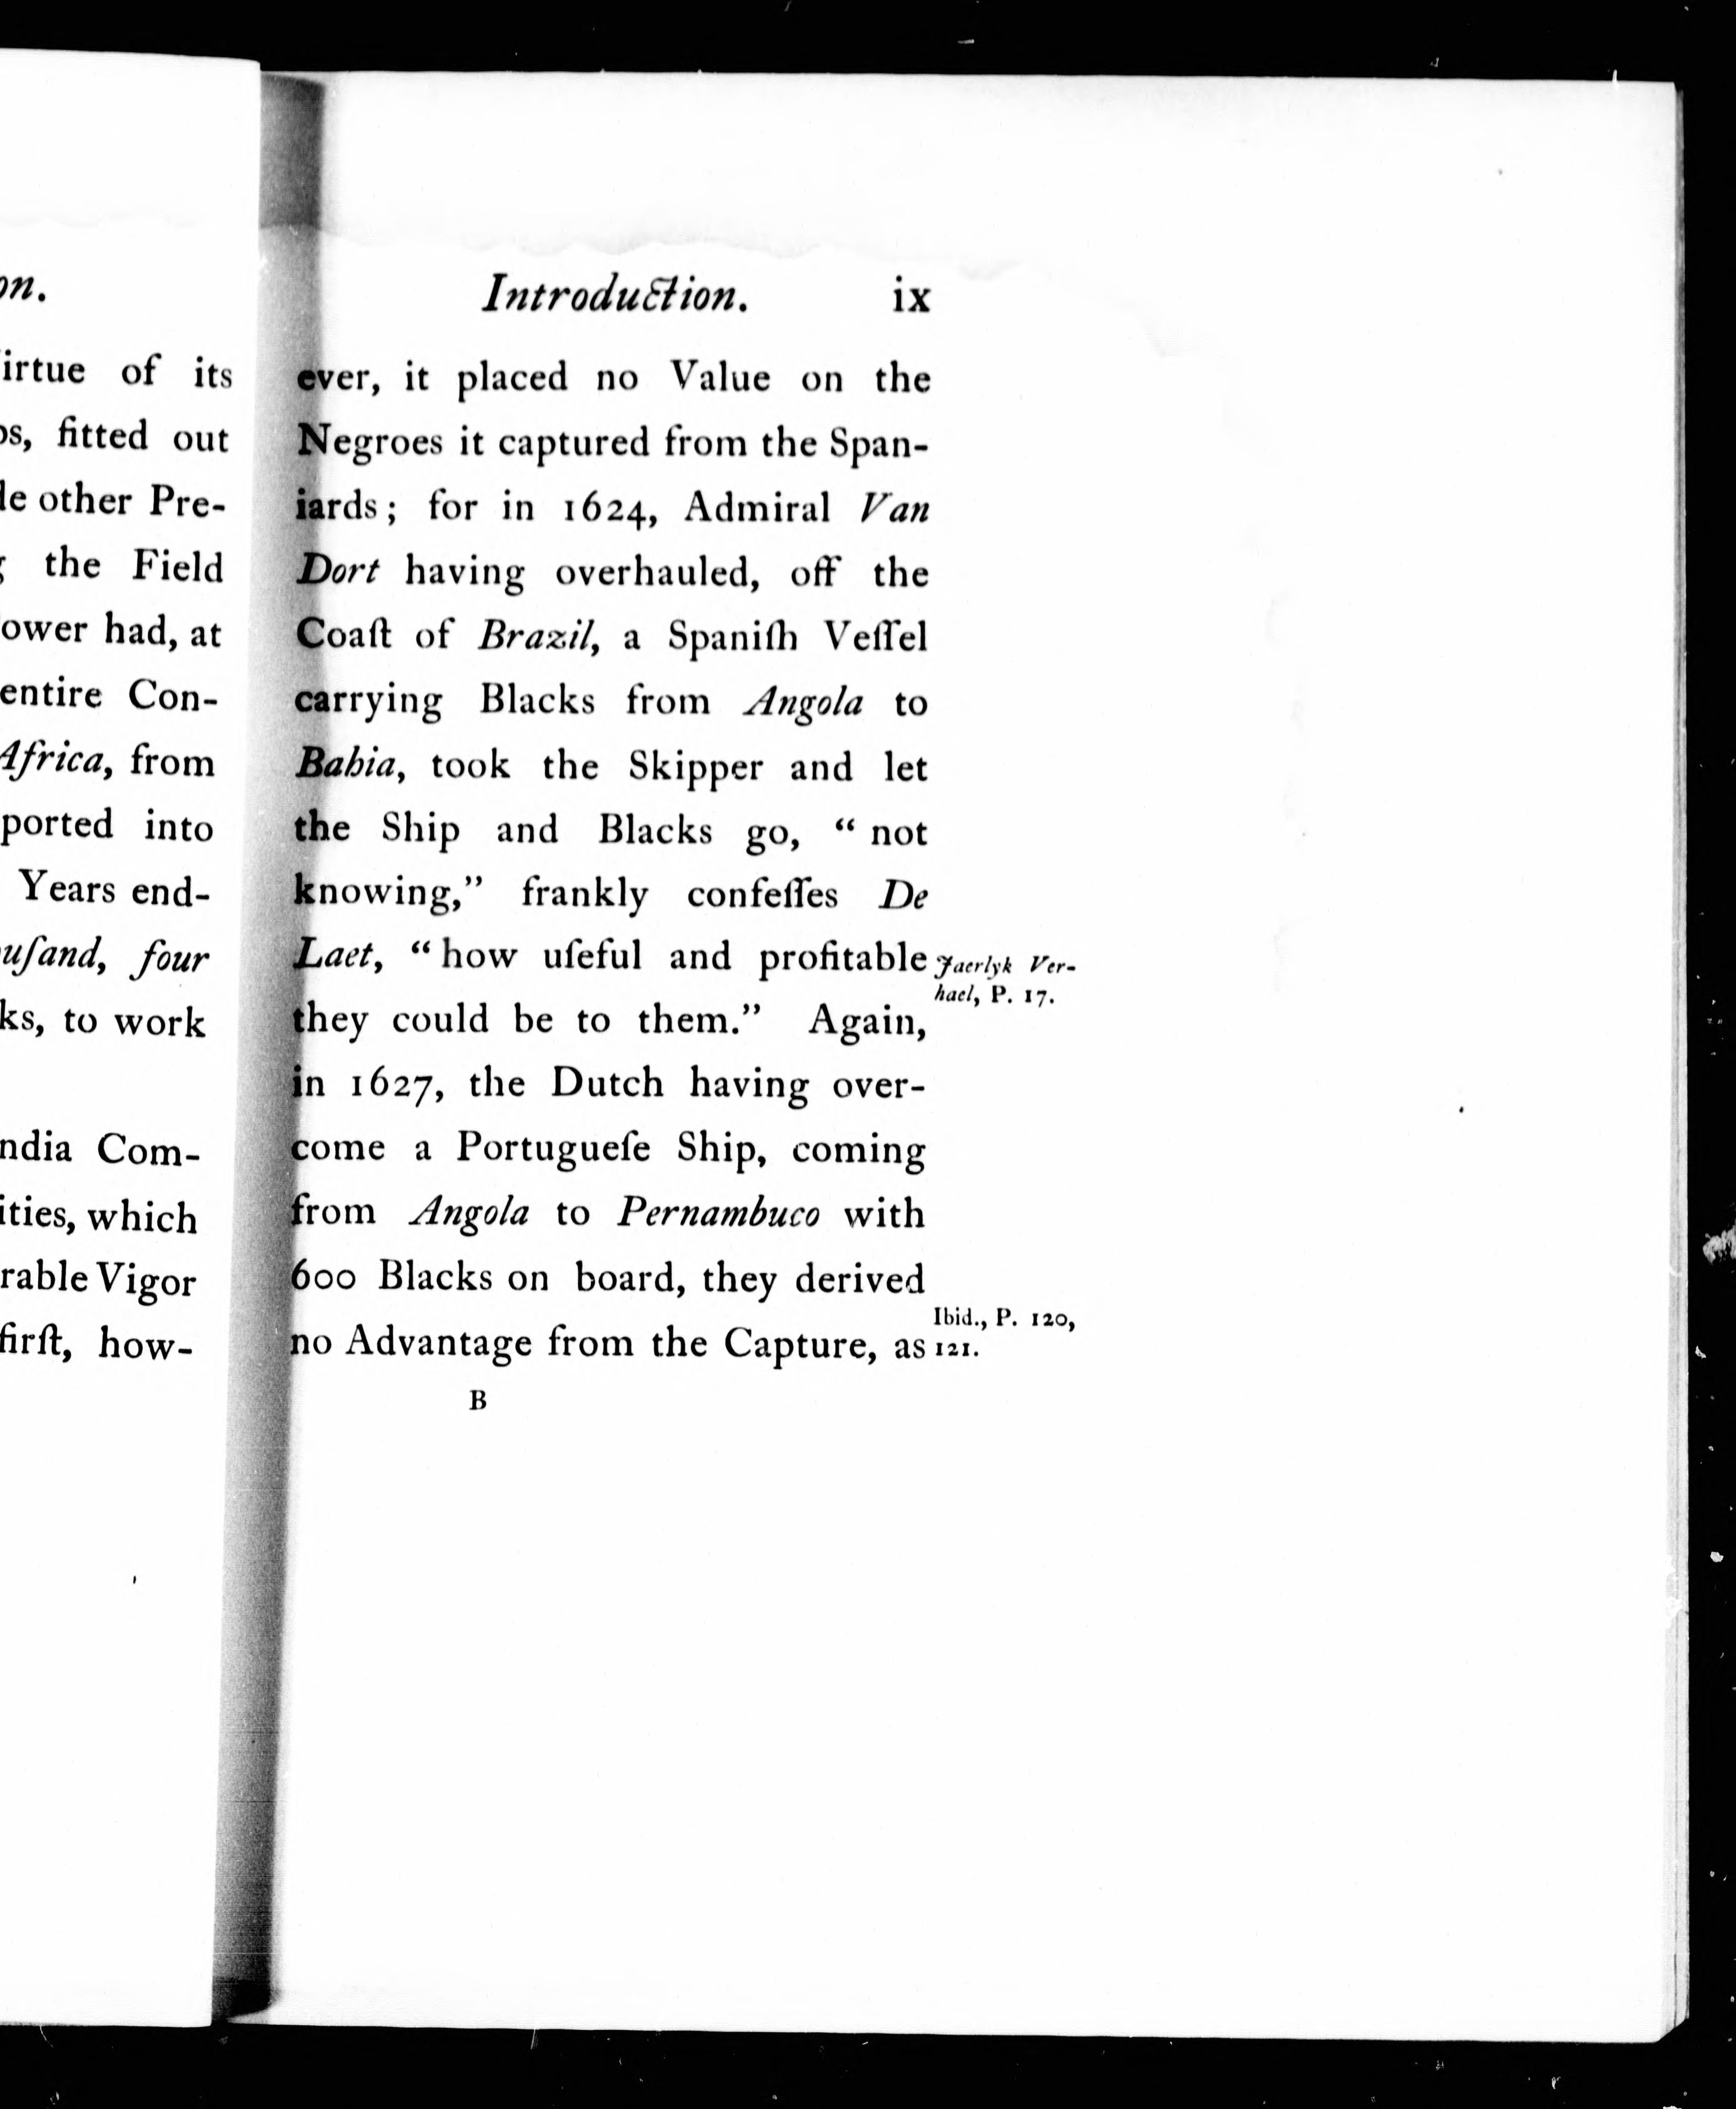 on.
irtue of its
fitted out
other Pre-
the Field
ower had, at
entire Con-
Africa, from
ported into
Years end-
uſand, four
ks, to work
ndia Com-
ities, which
rable Vigor
firſt, how-
Introduction. ix
ever, it placed no Value on the
Negroes it captured from the Span-
iards; for in 1624, Admiral Van
Dort having overhauled, off the
Coaſt of Brazil, a Spaniſh Veſſel
carrying Blacks from Angola to
Bahia, took the Skipper and let
the Ship and Blacks go, “ not
knowing,” frankly confeſſes De
Laet, “ how uſeful and profitable
Jaerlyk Ver-
hael, P. 17.
they could be to them.” Again,
in 1627, the Dutch having over-
come a Portugueſe Ship, coming
from Angola to Pernambuco with
600 Blacks on board, they derived
no Advantage from the Capture, as
Ibid., P. 120,
121.
B